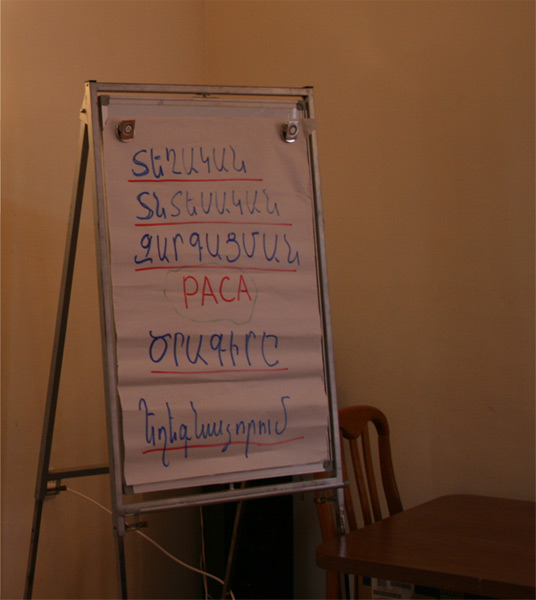 ՏԵՂԱԿԱՆ
ՏՆՏԵՍԱԿԱՆ
ԶԱՐԳԱՑՄԱՆ
PACA
ԾՐԱԳԻՐԸ
Եղեգնաձորում